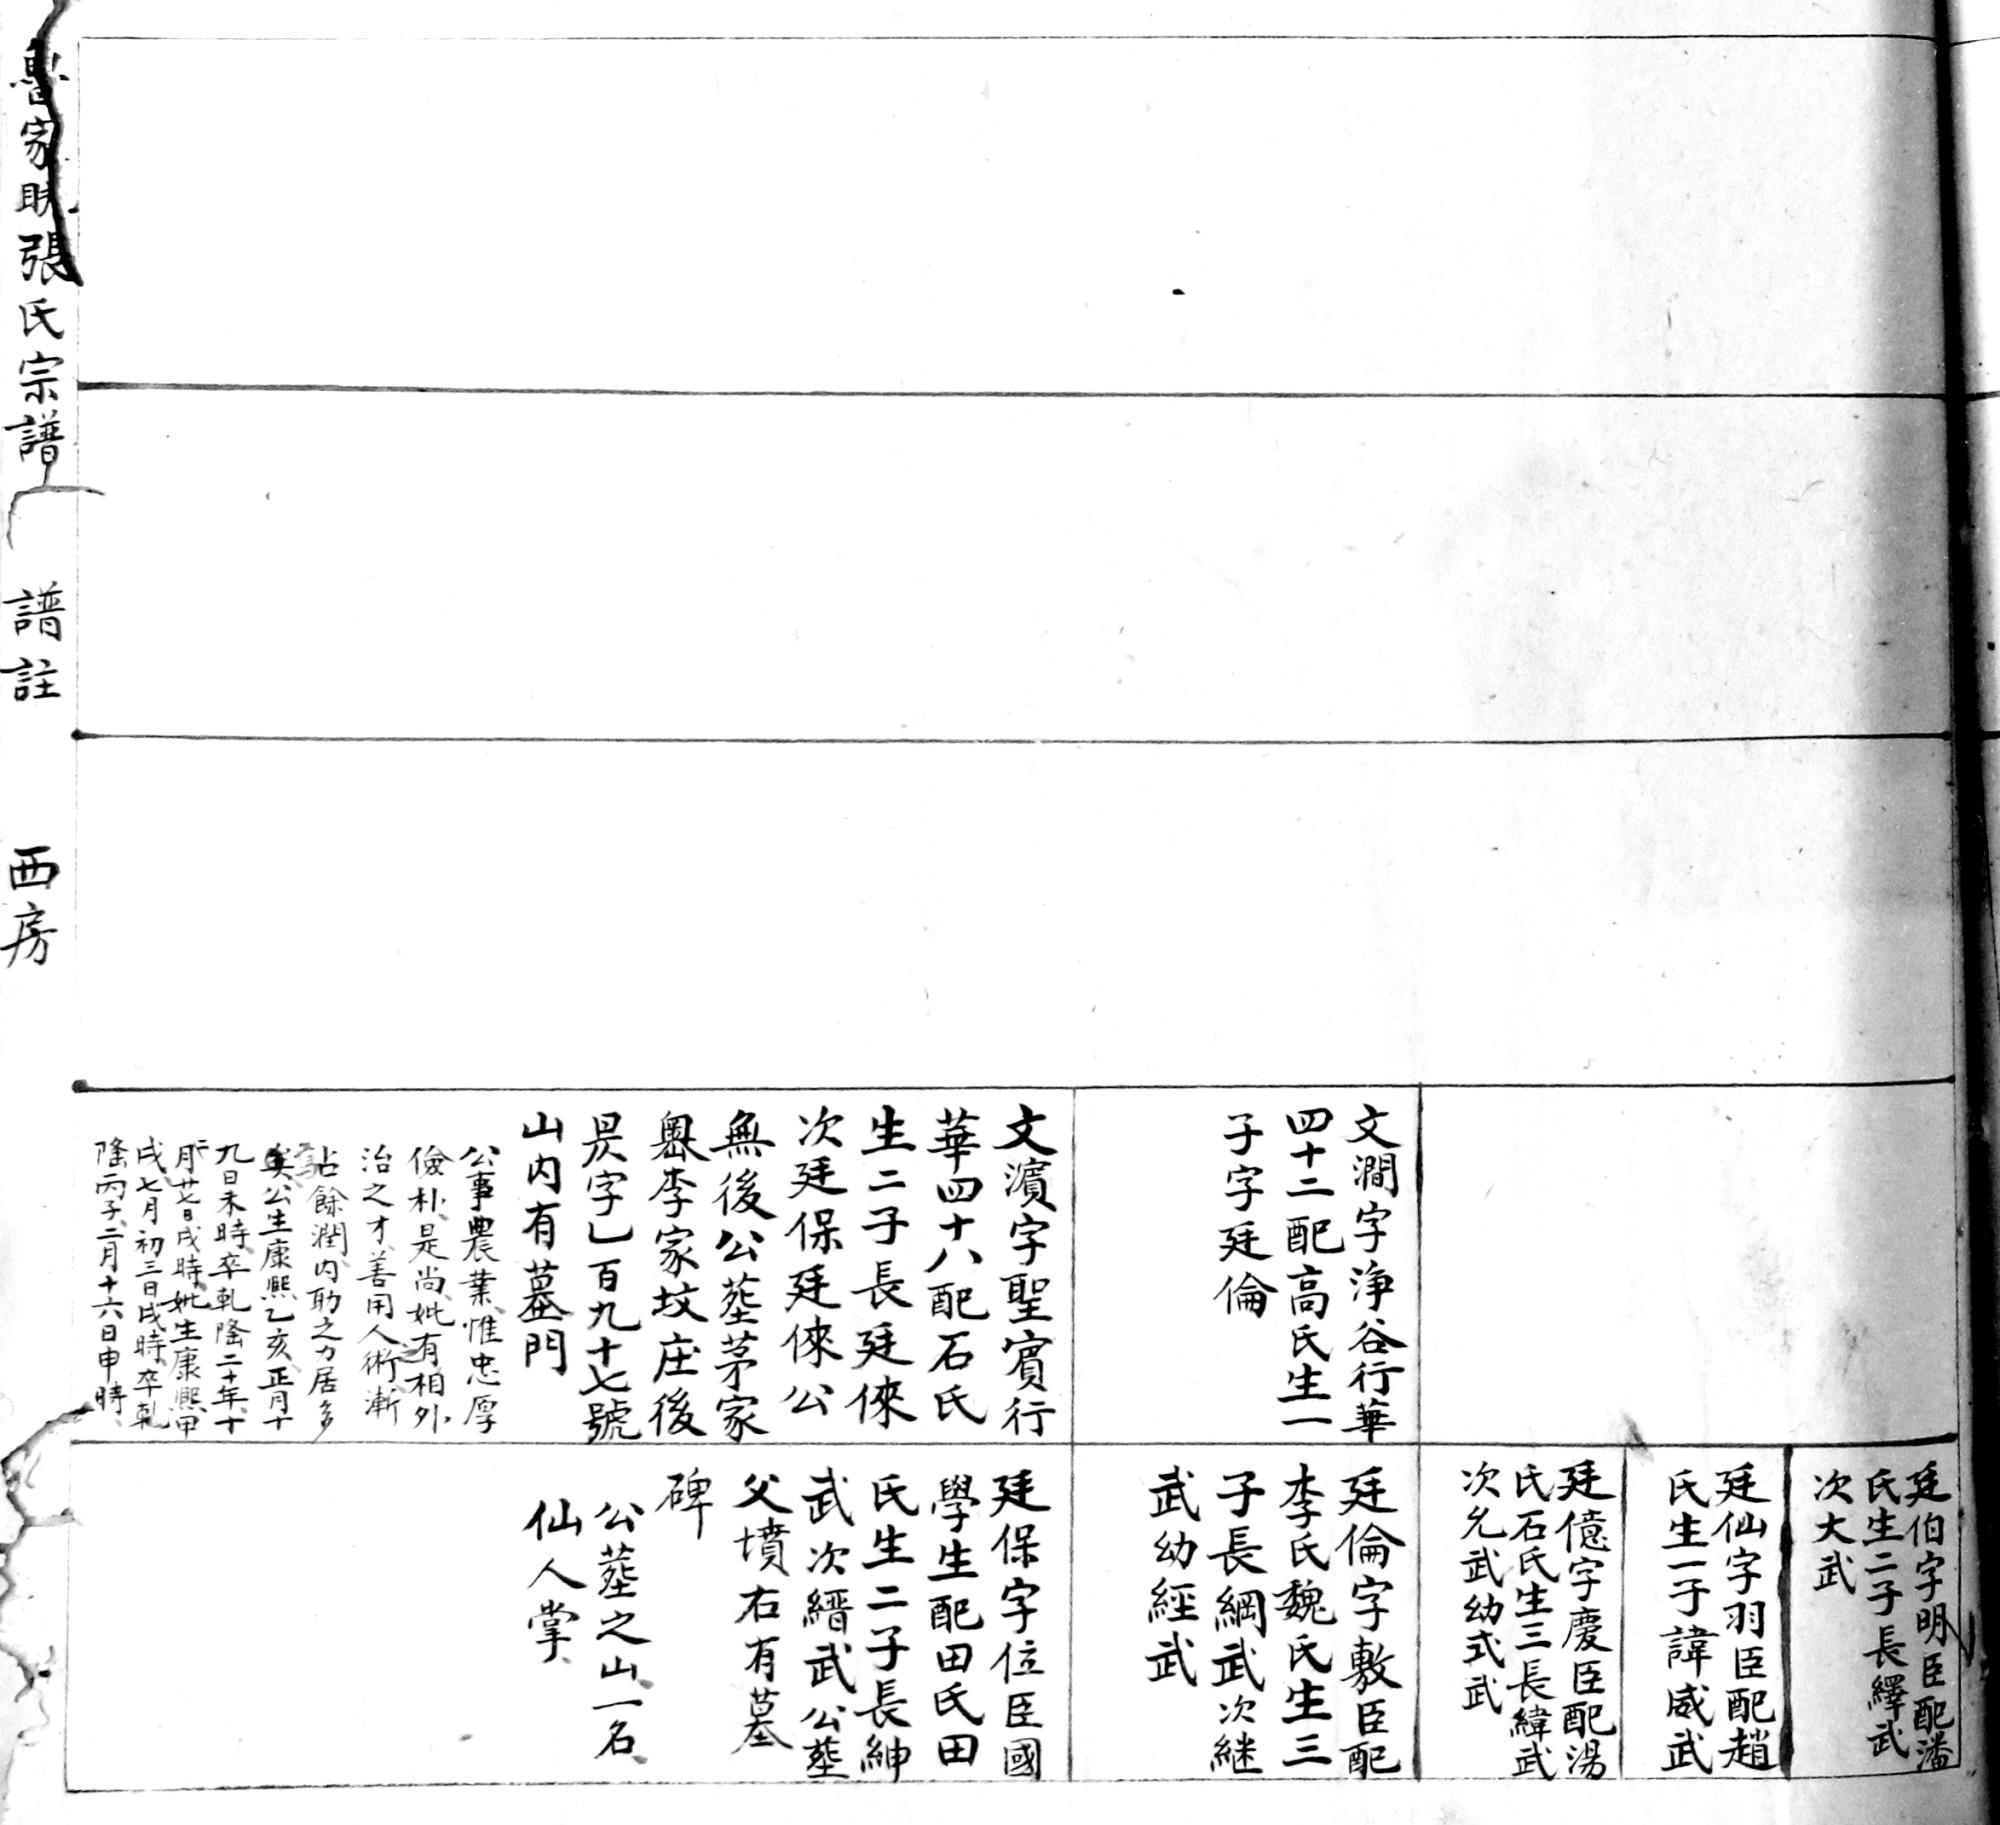 文澗字淨谷行華
四十二配高氏生一
子字廷倫
文濵字聖賓行
華四十八配石氏
生二子長廷倈
次廷保廷倈公
無後公塟茅家
嶴李家坟庄後
昃字乙百九十七號
山内有墓門
公事農業、惟忠厚
儉朴、是尚、妣有相外
治之才、善用人術、漸
沾餘潤、内助之力居多
矣、公生康熙乙亥、正月十
九日未時、卒乹隆二十年、十
月廿七日戌時、妣生康熙甲
戌、七月初三日戌時、卒乹
隆丙子、二月十六日申時、
廷伯字明臣配潘
氏生二子長繹武
次大武
廷仙字羽臣配趙
氏生一子諱威武
廷億字慶臣配湯
氏石氏生三長緯武
次允武幼式武
廷倫字敷臣配
李氏魏氏生三
子長綱武次継
武幼經武
廷保字位臣國
學生配田氏田
氏生二子長紳
武次縉武公塟
父墳右有墓
碑
公塟之山、一名、
仙人掌、
魯家㽘張氏宗譜
譜註
西房